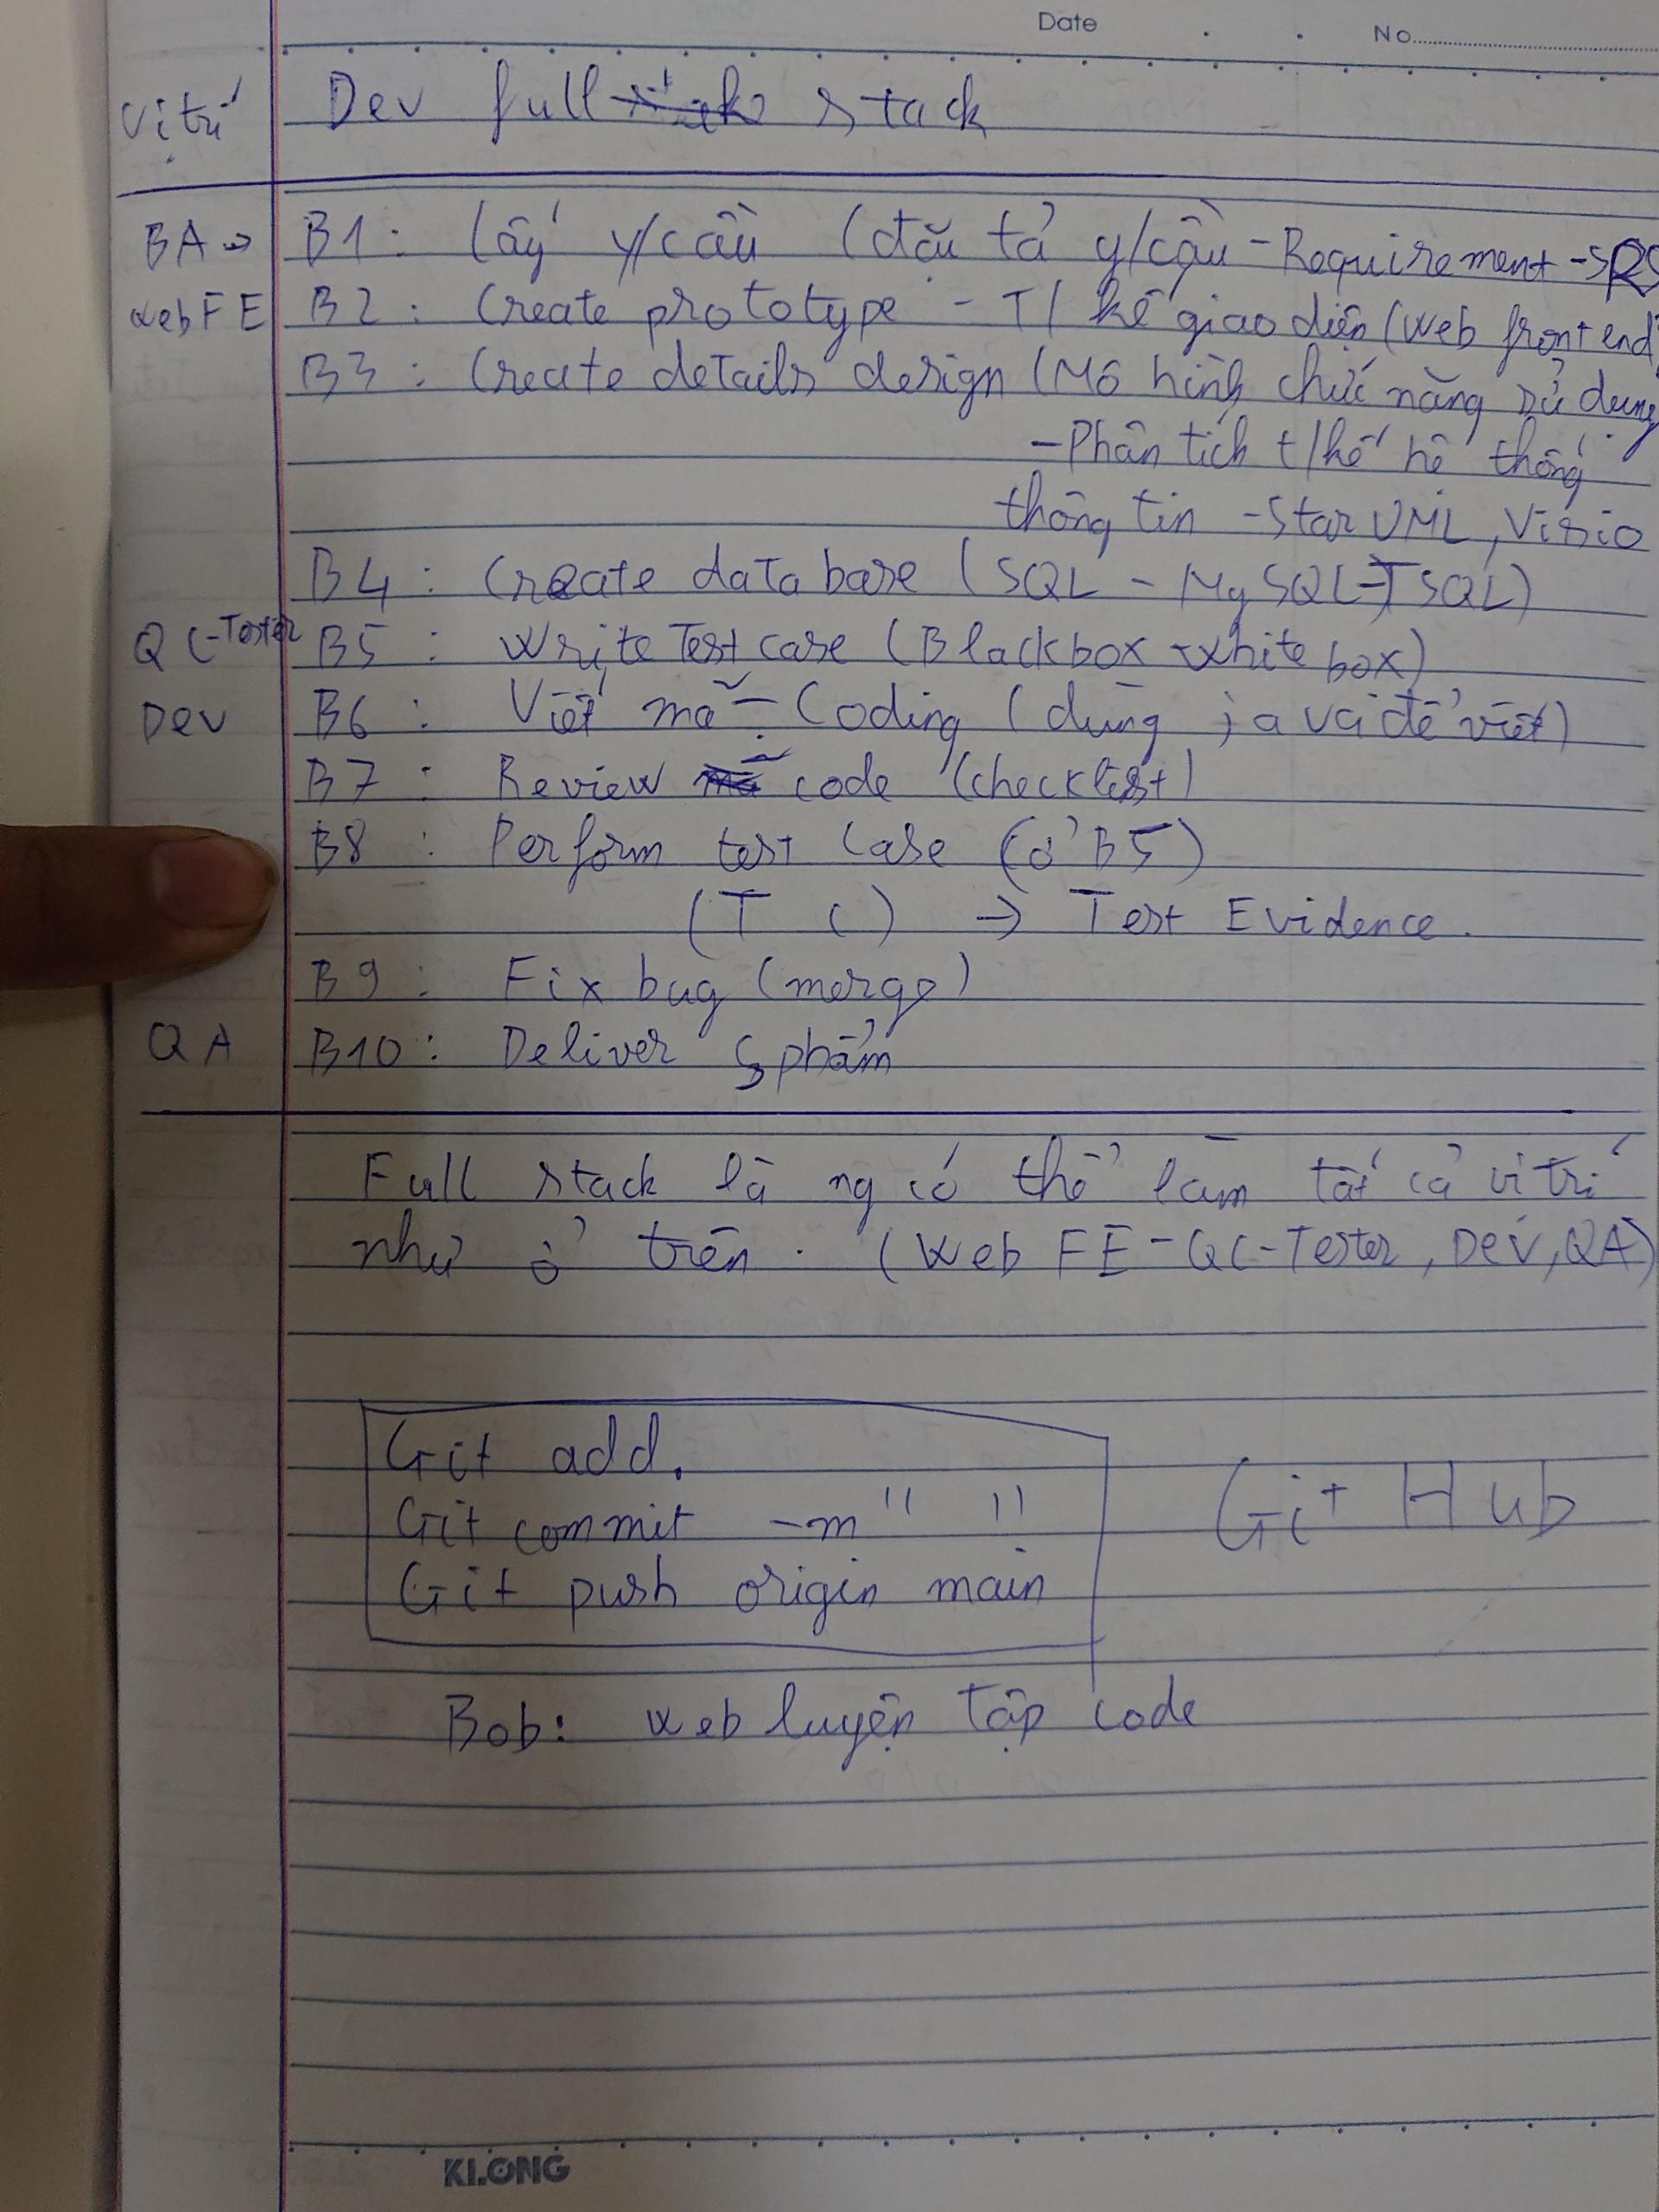 Date . . No
Vị trí Dev full stack
BA → B1: Lấy y/cầu (đặc tả y/cầu - Requirement - SRS
Web FE B2: Create prototype - T/kế giao diện (Web front end)
B3: Create details design (Mô hình chức năng sử dụng
- Phân tích t/kế hệ thống
thông tin - Star UML, Visio
B4: Create database (SQL - MySQL - TSQL)
QC-Tester B5: Write Test case (Blackbox - white box)
Dev B6: Viết mã - Coding (dùng java để viết)
B7: Review code (checklist)
B8: Perform test case (ở B5)
(T C) → Test Evidence.
B9: Fix bug (merge)
QA B10: Deliver s phẩm
Full stack là ng có thể làm tất cả vị trí
như ở trên. (Web FE - QC-Tester, Dev, QA)
Git add.
Git commit -m " "
Git Hub
Git push origin main
Bob: Web luyện tập code
KLONG